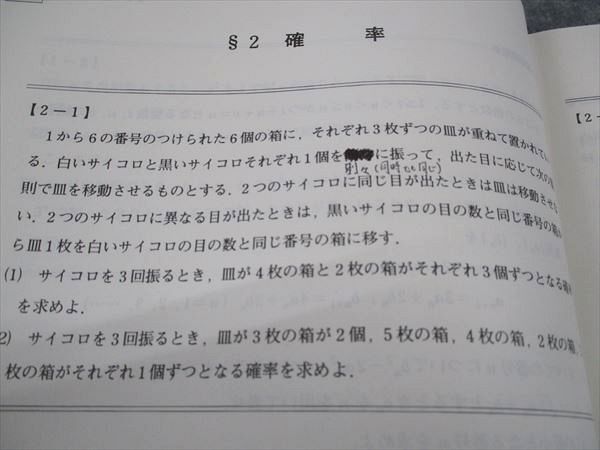 §2 確 率
【2-1】
【2-
1から6の番号のつけられた6個の箱に，それぞれ3枚ずつの皿が重ねて置かれてい
る．白いサイコロと黒いサイコロそれぞれ1個を に振って，出た目に応じて次の
別々(同時でも同じ)
則で皿を移動させるものとする．2つのサイコロに同じ目が出たときは皿は移動させ
い．2つのサイコロに異なる目が出たときは，黒いサイコロの目の数と同じ番号の箱
ら皿1枚を白いサイコロの目の数と同じ番号の箱に移す．
(1) サイコロを3回振るとき，皿が4枚の箱と2枚の箱がそれぞれ3個ずつとなる確
を求めよ．
2) サイコロを3回振るとき，皿が3枚の箱が2個，5枚の箱，4枚の箱，2枚の箱
枚の箱がそれぞれ1個ずつとなる確率を求めよ．